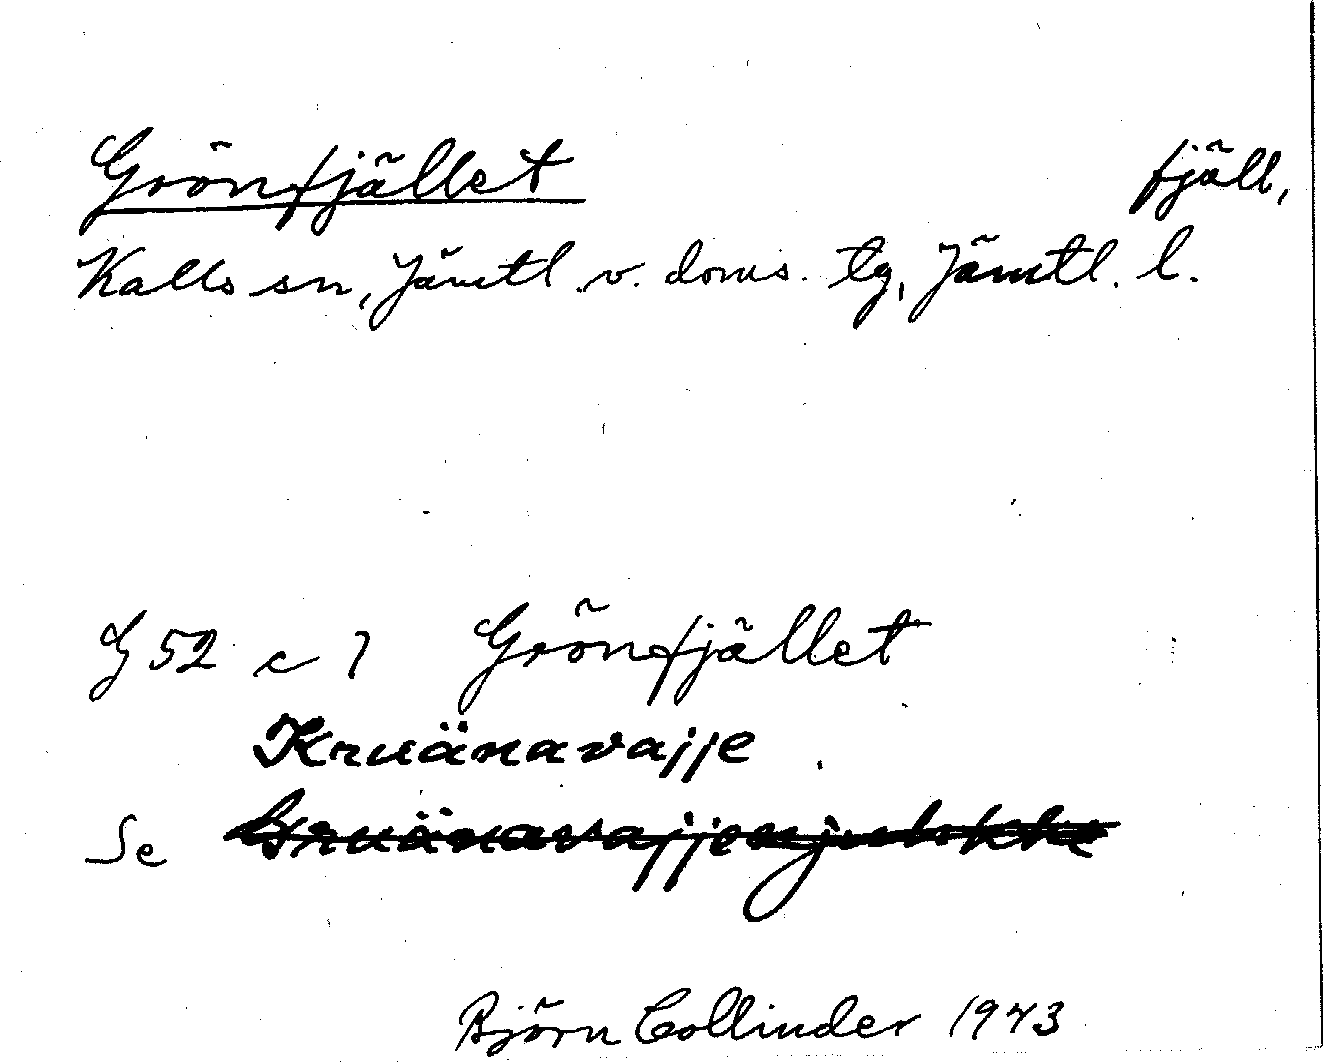 Grönfjället fjäll,
Kalls sn, Jämtl. v. doms. tg, Jämtl. l.
G 52 c 7 Grönfjället
Kruänavajje
Se
Björn Collinder 1943